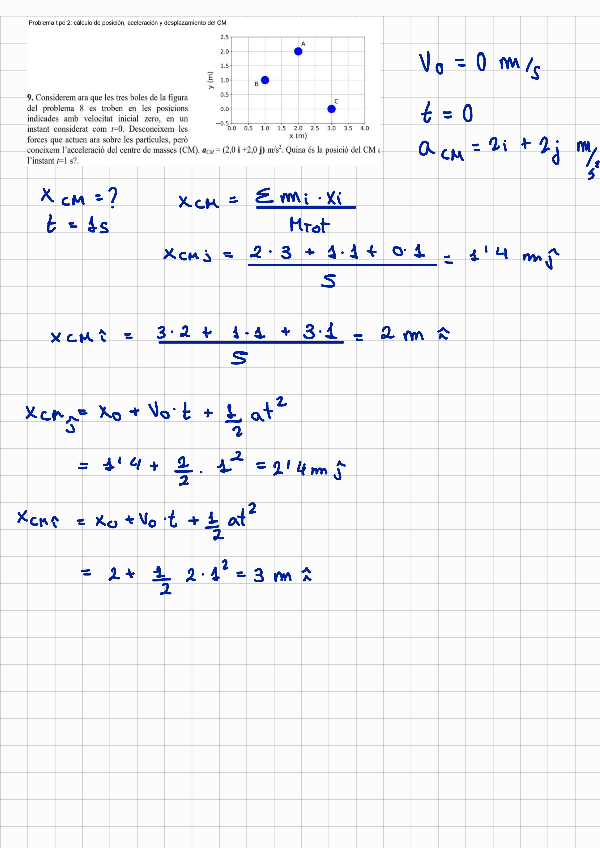 Problema tipo 2: cálculo de posición, aceleración y desplazamiento del CM
2.5
2.0
1.5
1.0
0.5
0.0
−0.5
y (m)
A
B
C
0.0 0.5 1.0 1.5 2.0 2.5 3.0 3.5 4.0
x (m)
9. Considerem ara que les tres boles de la figura
del problema 8 es troben en les posicions
indicades amb velocitat inicial zero, en un
instant considerat com t=0. Desconeixem les
forces que actuen ara sobre les partícules, però
coneixem l'acceleració del centre de masses (CM), aCM = (2,0 i +2,0 j) m/s². Quina és la posició del CM a
l'instant t=1 s?.
V₀ = 0 m/s
t = 0
a CM = 2i + 2j m/s²
x CM = ?
t = 1s
x CM = Σ mi · xi / MTot
x CM j = 2·3 + 1·1 + 0·1 / 5 = 1'4 m ĵ
x CM î = 3·2 + 1·1 + 3·1 / 5 = 2 m î
x CM ĵ = x₀ + V₀·t + 1/2 at²
= 1'4 + 2/2 · 1² = 2'4 m ĵ
x CM î = x₀ + V₀·t + 1/2 at²
= 2 + 1/2 2·1² = 3 m î